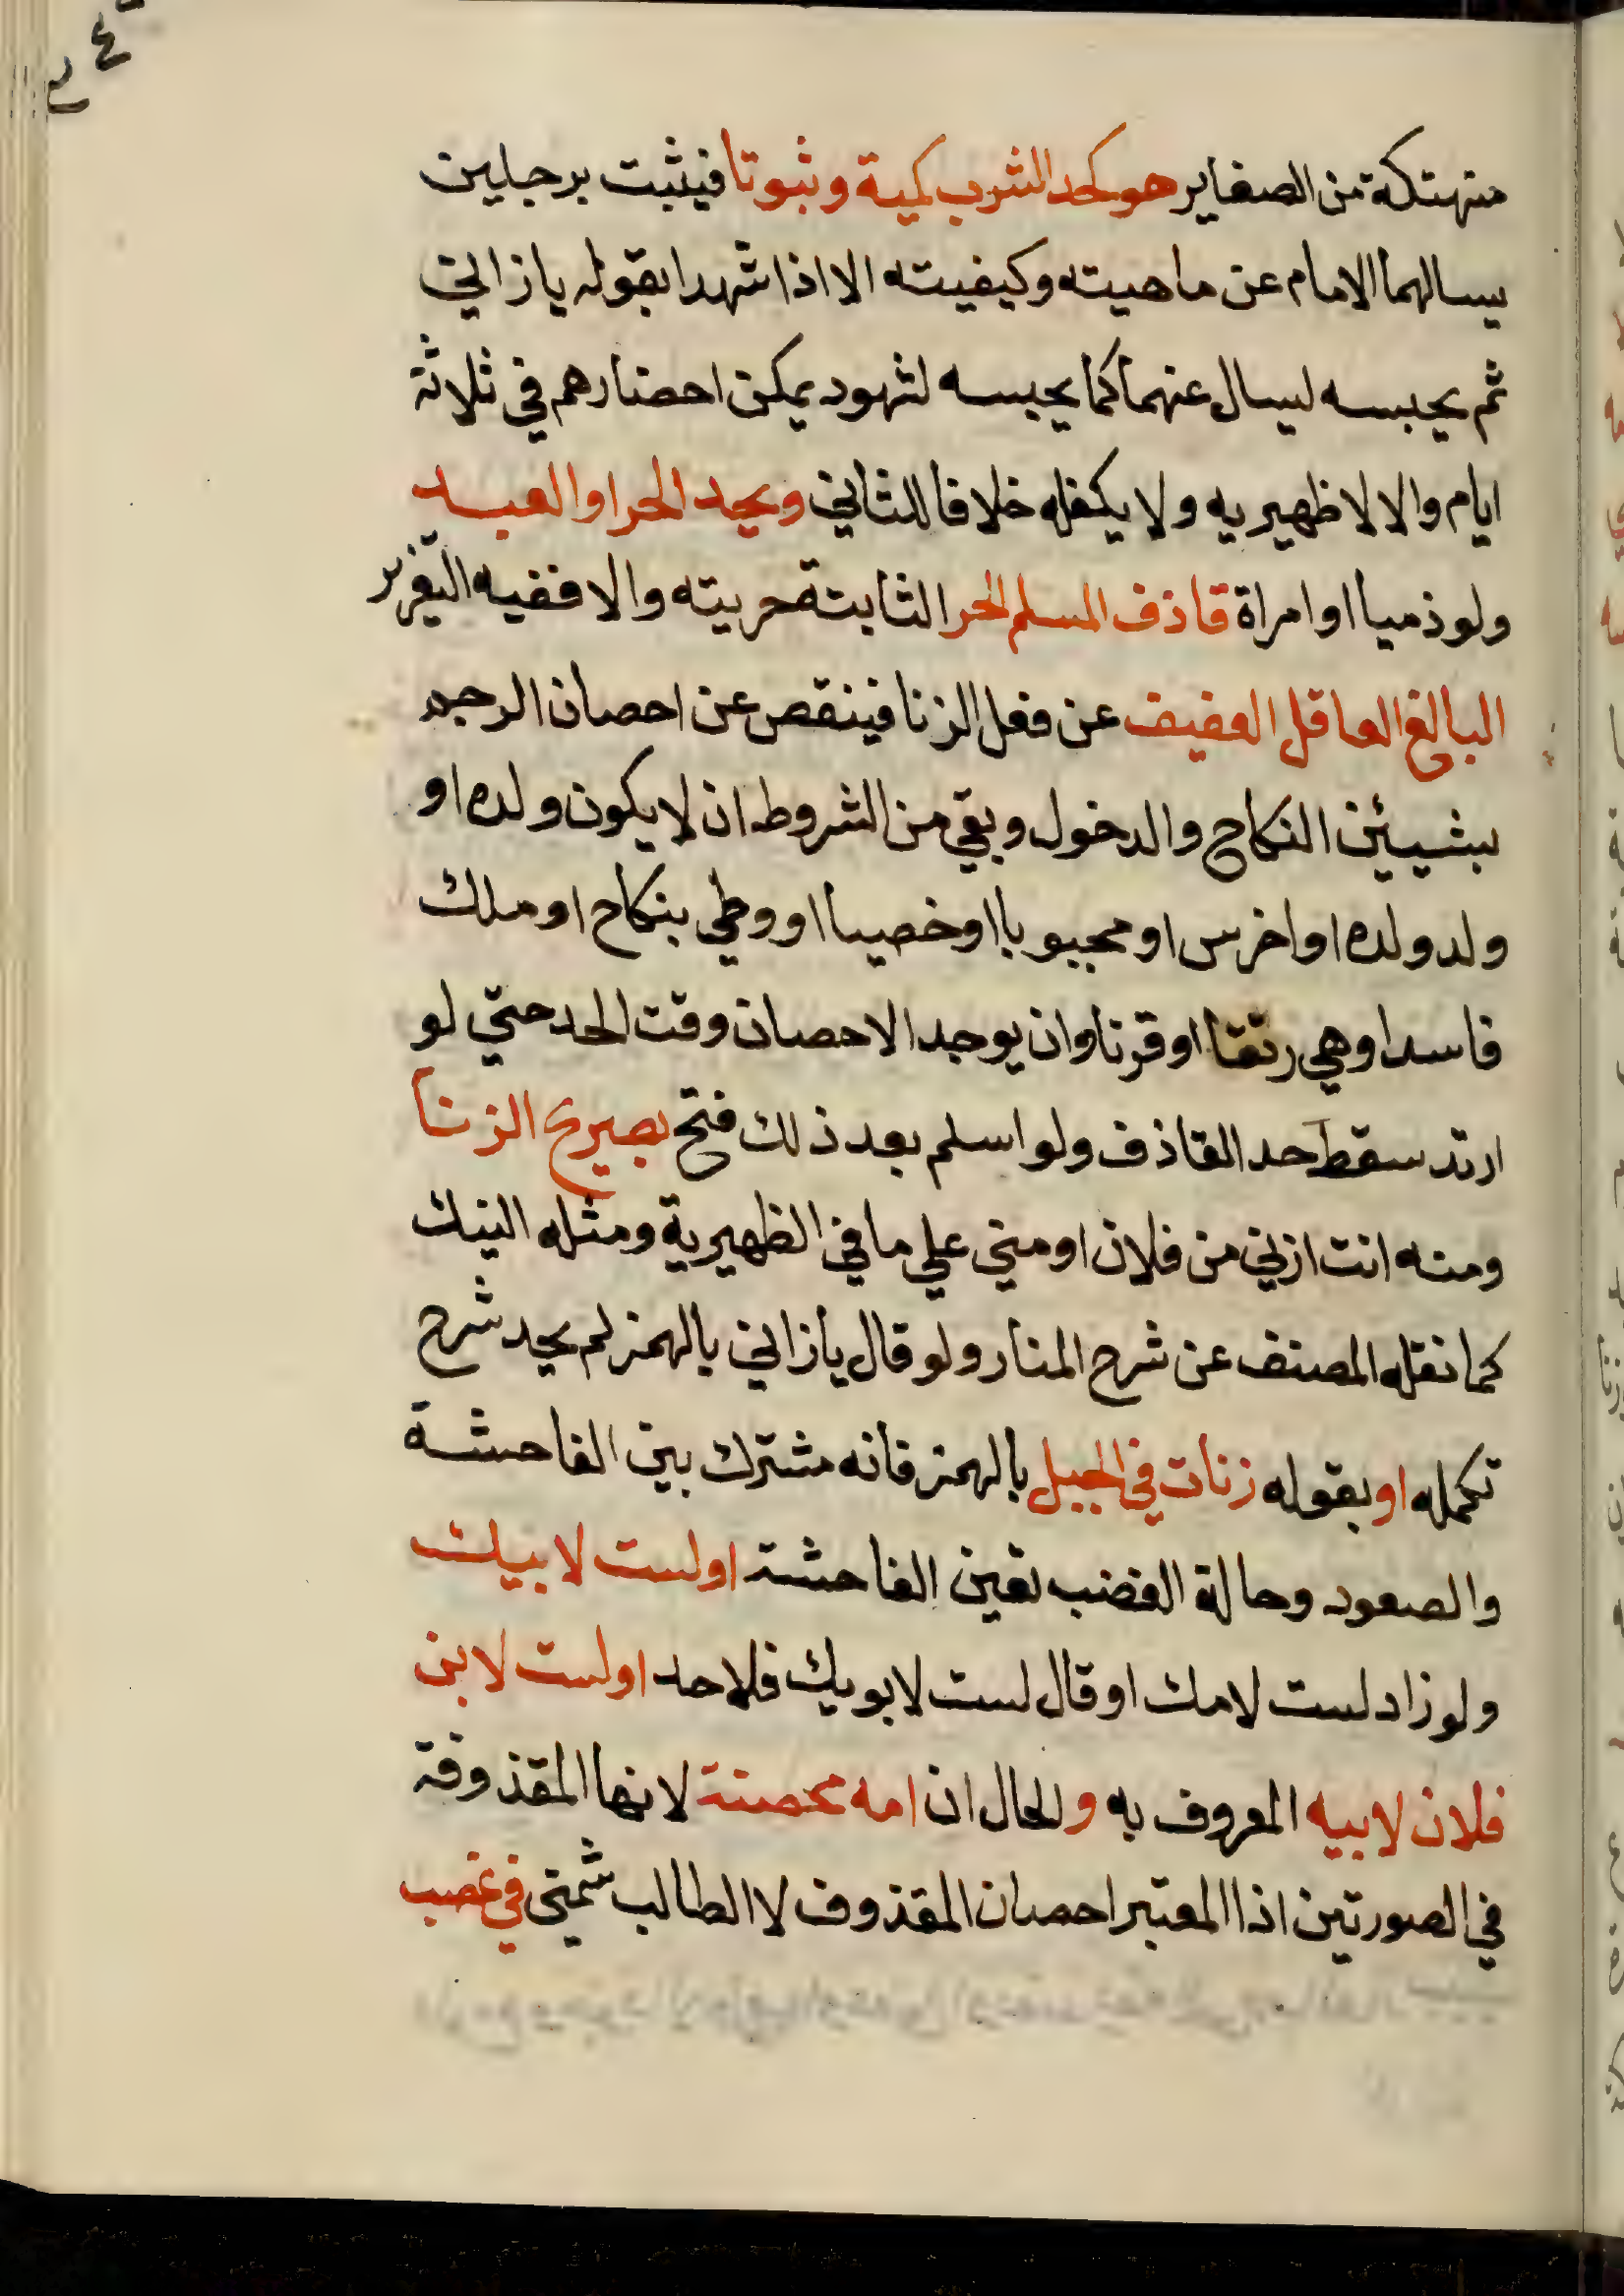 منهتكة من الصغاير هو كحد الشرب كمية وثبوتا فيثبت برجلين
يسالهما الامام عن ماهيته وكيفيته الا اذا شهدا بقوله يازاني
ثم يحبسه ليسال عنهما كما يحبسه لشهود يمكن احضارهم في ثلاثة
ايام والا لا ظهيريه ولا يكفله خلافا للثاني ويحد الحر او العبد
ولو ذميا او امراة قاذف المسلم الحر الثابتة حريته والا ففيه التعزير
البالغ العاقل العفيف عن فعل الزنا فينقص عن احصان الرجم
بشيئين النكاح والدخول وبقي من الشروط ان لا يكون ولده او
ولد ولده او اخرس او مجبوبا او خصيا او وطي بنكاح او ملك
فاسد او هي رتقا او قرنا وان يوجد الاحصان وقت الحد حتي لو
ارتد سقط حد القاذف ولو اسلم بعد ذلك فتح بصريح الزنا
ومنه انت ازني من فلان او مني علي ما في الظهيرية ومثله النيك
كما نقله المصنف عن شرح المنار ولو قال يازاني بالهمز لم يحد شرح
تكمله او بقوله زنات في الجبل بالهمز فانه مشترك بين الفاحشة
والصعود وحالة الغضب تعين الفاحشة او لست لابيك
ولو زاد لست لامك او قال لست لابويك فلا حد او لست لابن
فلان لابيه المعروف به والحال ان امه محصنة لانها المقذوفة
في الصورتين اذ المعتبر احصان المقذوف لا الطالب شمني في غضب